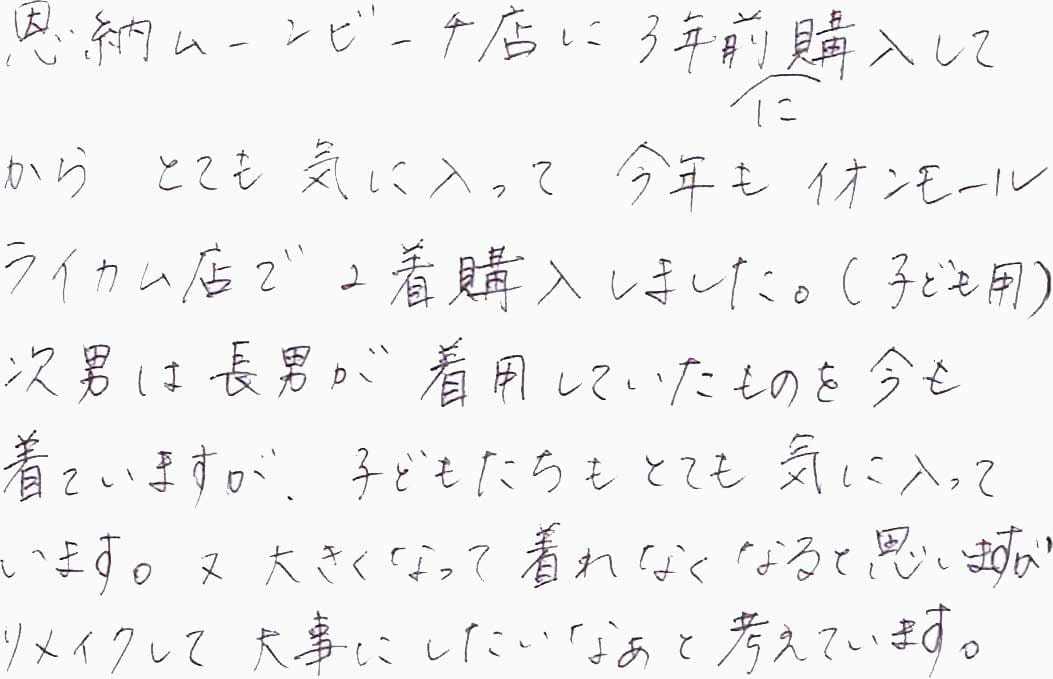 恩納ムーンビーチ店に3年前に購入して
から とても 気に入って 今年も イオンモール
ライカム店で 2着購入しました。(子ども用)
次男は長男が 着用していたものを今も
着ていますが、子どもたちもとても 気に入って
います。又 大きくなって着れなくなると思いますが
リメイクして 大事にしたいなぁと考えています。